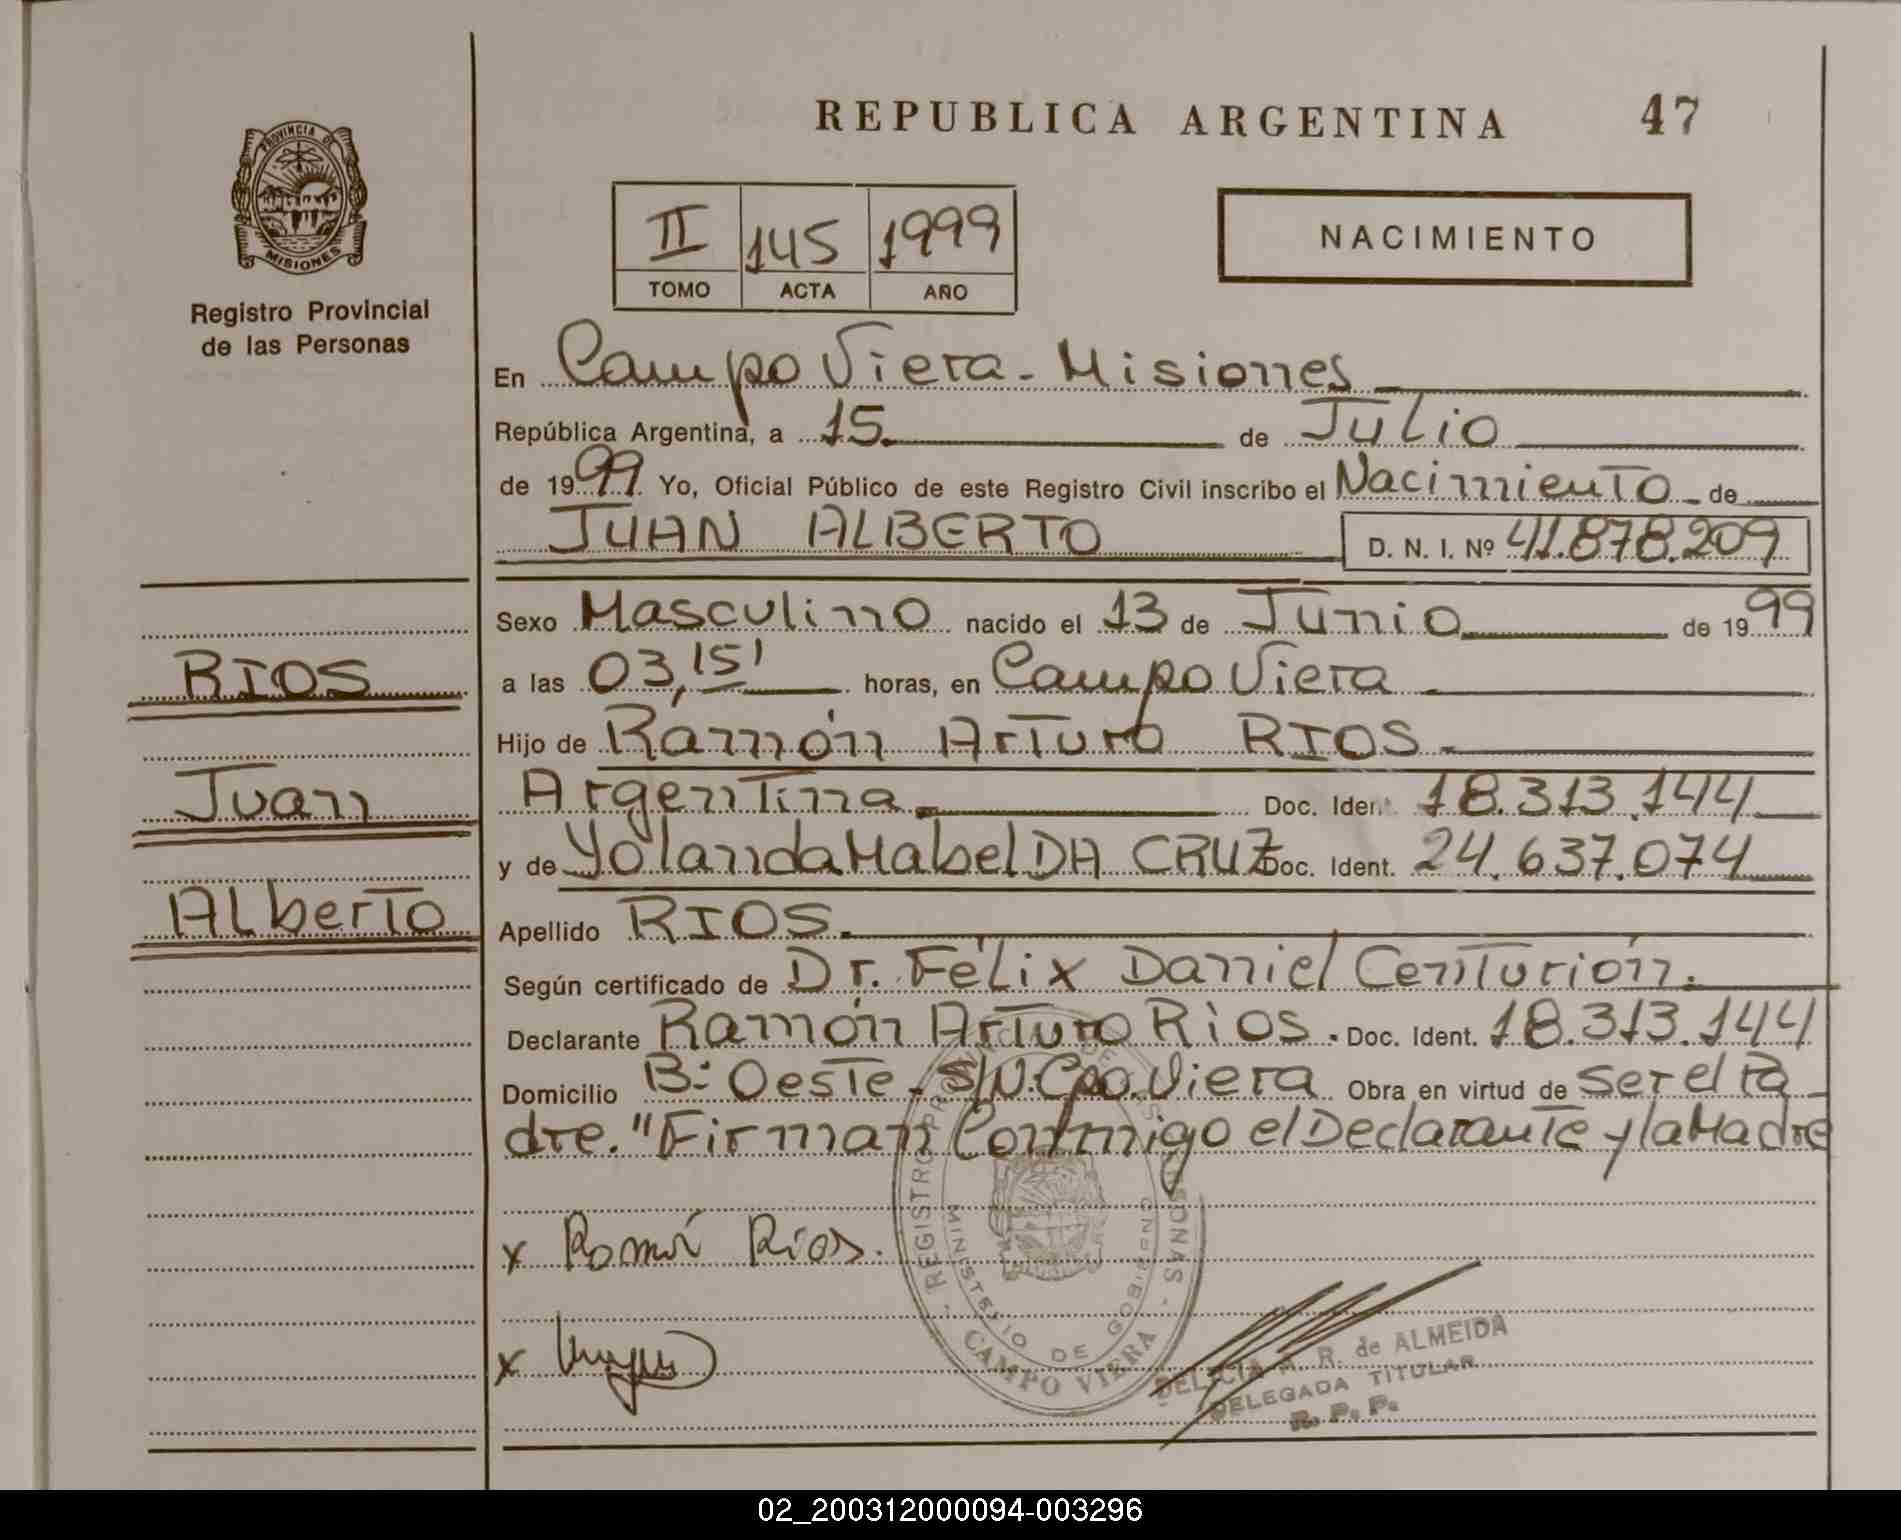 REPUBLICA ARGENTINA 47
PROVINCIA DE
MISIONES
Registro Provincial
de las Personas
II 145 1999
TOMO ACTA AÑO
NACIMIENTO
En Campo Viera - Misiones
República Argentina, a 15 de Julio
de 1999 Yo, Oficial Público de este Registro Civil inscribo el Nacimiento de
JUAN ALBERTO D. N. I. Nº 41.878.209
Sexo Masculino nacido el 13 de Junio de 1999
a las 03,15' horas, en Campo Viera
Hijo de Ramón Arturo RIOS
Argentina Doc. Ident. 18.313.144
y de Yolanda Mabel DA CRUZ Doc. Ident. 24.637.074
Apellido RIOS.
Según certificado de Dr. Félix Daniel Centurión.
Declarante Ramón Arturo Rios. Doc. Ident. 18.313.144
Domicilio Bº Oeste - S/N. Cpo. Viera Obra en virtud de ser el Pa
dre. "Firman Conmigo el Declarante y la Madre
RIOS
Juan
Alberto
x Ramón Rios.
x
REGISTRO PROVINCIAL DE LAS PERSONAS
MINISTERIO DE GOBIERNO
CAMPO VIERA
DELICIA R. de ALMEIDA
DELEGADA TITULAR
R. P. P.
02_200312000094-003296